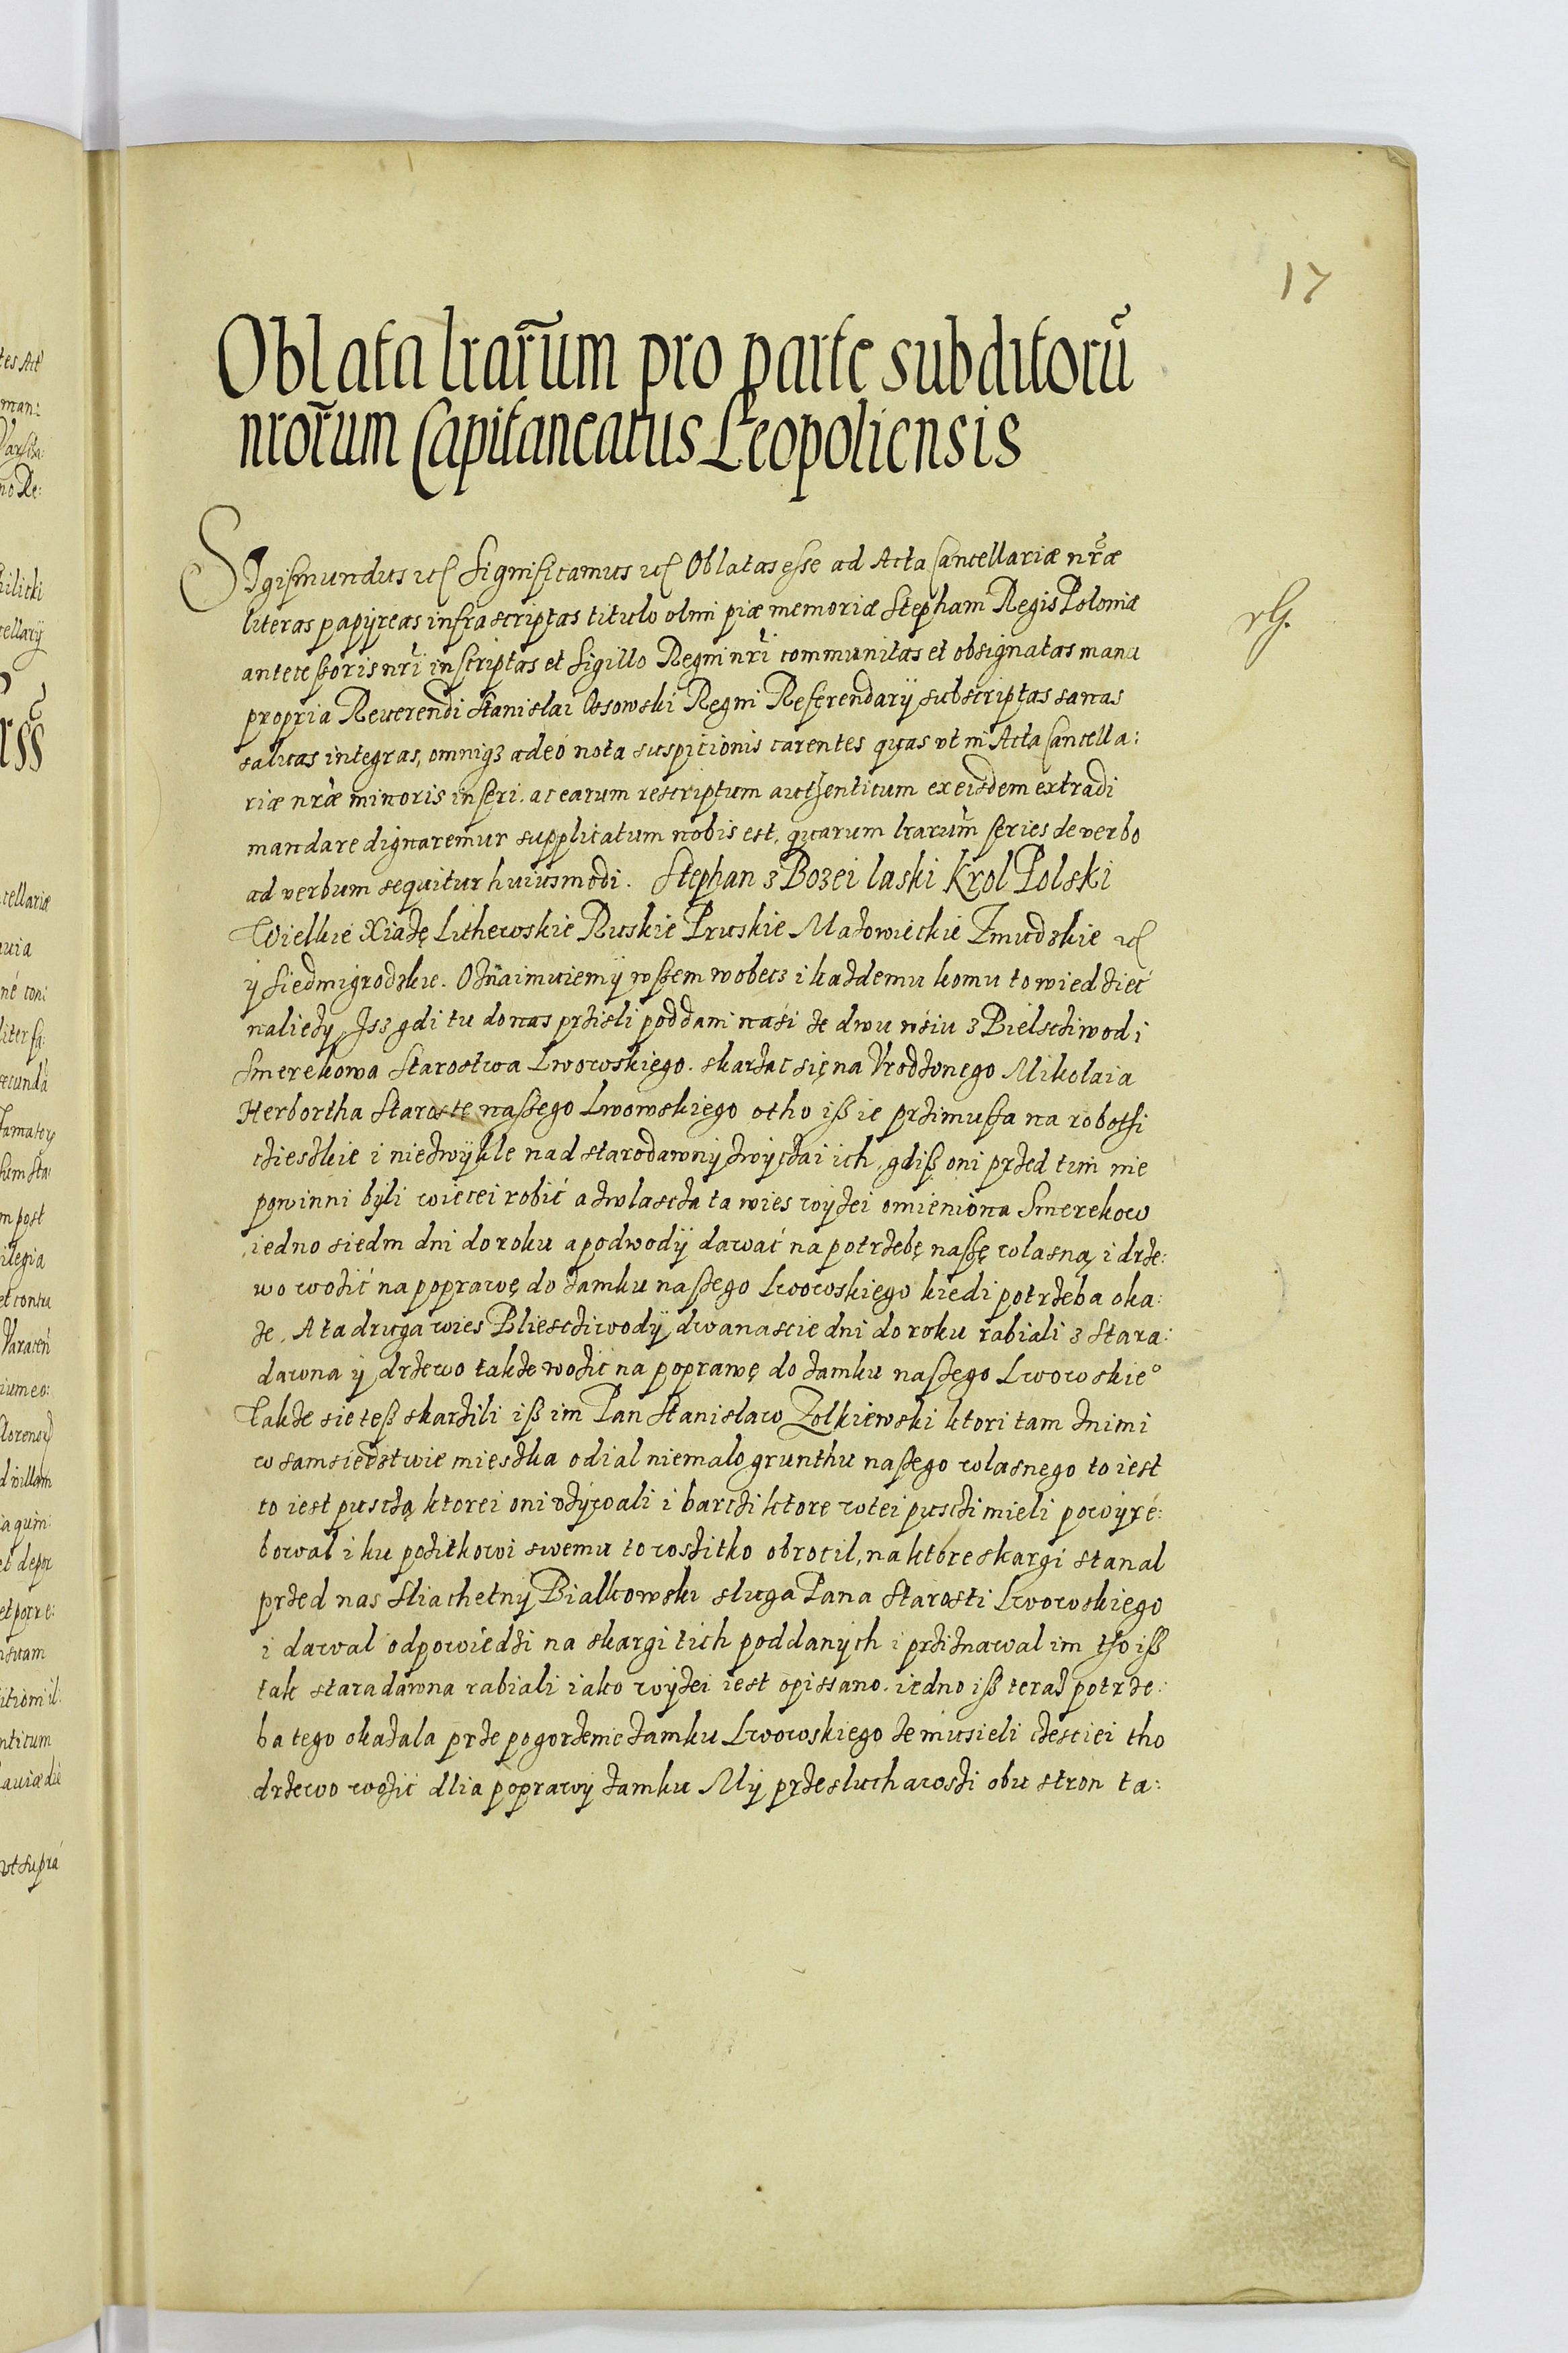 17
Oblata lrarum pro parte subditorũ
nrorum Capitaneatus Leopoliensis
Sigismundus etc Significamus etc Oblatas esse ad Acta Cancellariæ nræ
literas papÿreas infrascriptas titulo olim piæ memoriæ Stephani Regis Poloniæ
antecessoris nri inscriptas et Sigillo Regni nri communitas et obsignatas manu
propria Reuerendi Stanislai Ossowski Regni Referendarÿ subscriptas sanas
saluas integras, omniqz adeó nota suspicionis carentes quas vt in Acta Cancella:
riæ nræ minoris inseri. ac earum rescriptum authenticum ex eisdem extradi
mandare dignaremur supplicatum nobis est, quarum lrarum series de verbo
ad verbum sequitur huiusmodi. Stephan z Bozei laski Krol Polski
Wielkie Xiażę Lithewskie Ruskie Pruskie Mazowieckie Zmudzkie etc
ÿ Siedmigrodzkie. Oznaimuiemÿ wssem wobecz i każdemu komu to wiedzieć
należy Jsz gdi tu do nas przisli poddani nasi ze dwu wsiu z Bielscziwod i
Smerekowa Starostwa Lwowskiego. skarżac się na Vrodzonego Mikolaia
Herbortha Staroste nassego Lwowskiego otho iß ie przimussa na robothi
czieszkie i niezwÿkle nad starodawnÿ zwÿczai ich, gdiß oni przed tim nie
powinni bÿli wiecei robić a zwlascza ta wies wÿzei omieniona Smerekow
iedno siedm dni do roku a podwodÿ dawać na potrzebę nassę wlasną i drze:
wo wozić na poprawę do zamku nassego Lwowskiego kiedi potrzeba oka:
że. A ta druga wies Bliescziwodÿ dwanascie dni do roku rabiali z stara:
dawna ÿ drzewo takze wozić na poprawę do zamku nassego Lwowskie°
Takze sie teß skarzili iß im Pan Stanislaw Zolkiewski ktori tam znimi
w samsiedstwie mieszka odial niemalo grunthu nassego wlasnego to iest
to iest puszczą ktorei oni vżÿwali i barczi ktore wtei pusczi mieli powÿré:
bowal i ku pozitkowi swemu to wszitko obrocil, na ktore skargi stanal
przed nas Sliachetnÿ Bialkowski sluga Pana Starosti Lwowskiego
i dawal odpowiédzi na skargi tich poddanÿch i prziznawal im tho iß
tak staradawna rabiali iako wÿzei iest opissano. iedno iß teraz potrze:
ba tego okazala prze pogorzenie zamku Lwowskiego ze musieli czesciei tho
drzewo wozić dlia poprawÿ zamku Mÿ przesluchawszi obu stron ta: